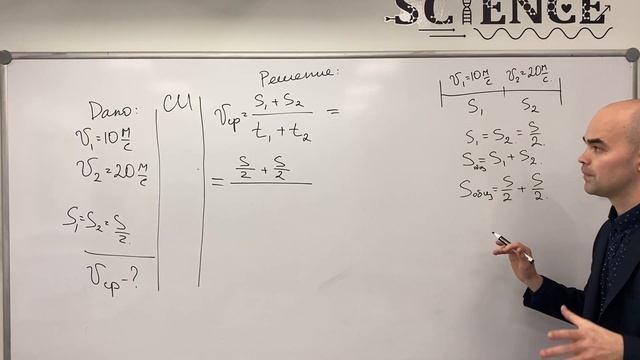 SCIENCE
Дано:
V₁=10 м/с
V₂=20 м/с
S₁=S₂=S/2.
Vср-?
СИ
Решение:
Vср= (S₁+S₂)/(t₁+t₂) =
= (S/2 + S/2)
V₁=10 м/с V₂=20 м/с
S₁ S₂
S₁=S₂=S/2
Sобщ=S₁+S₂.
Sобщ=S/2+S/2.